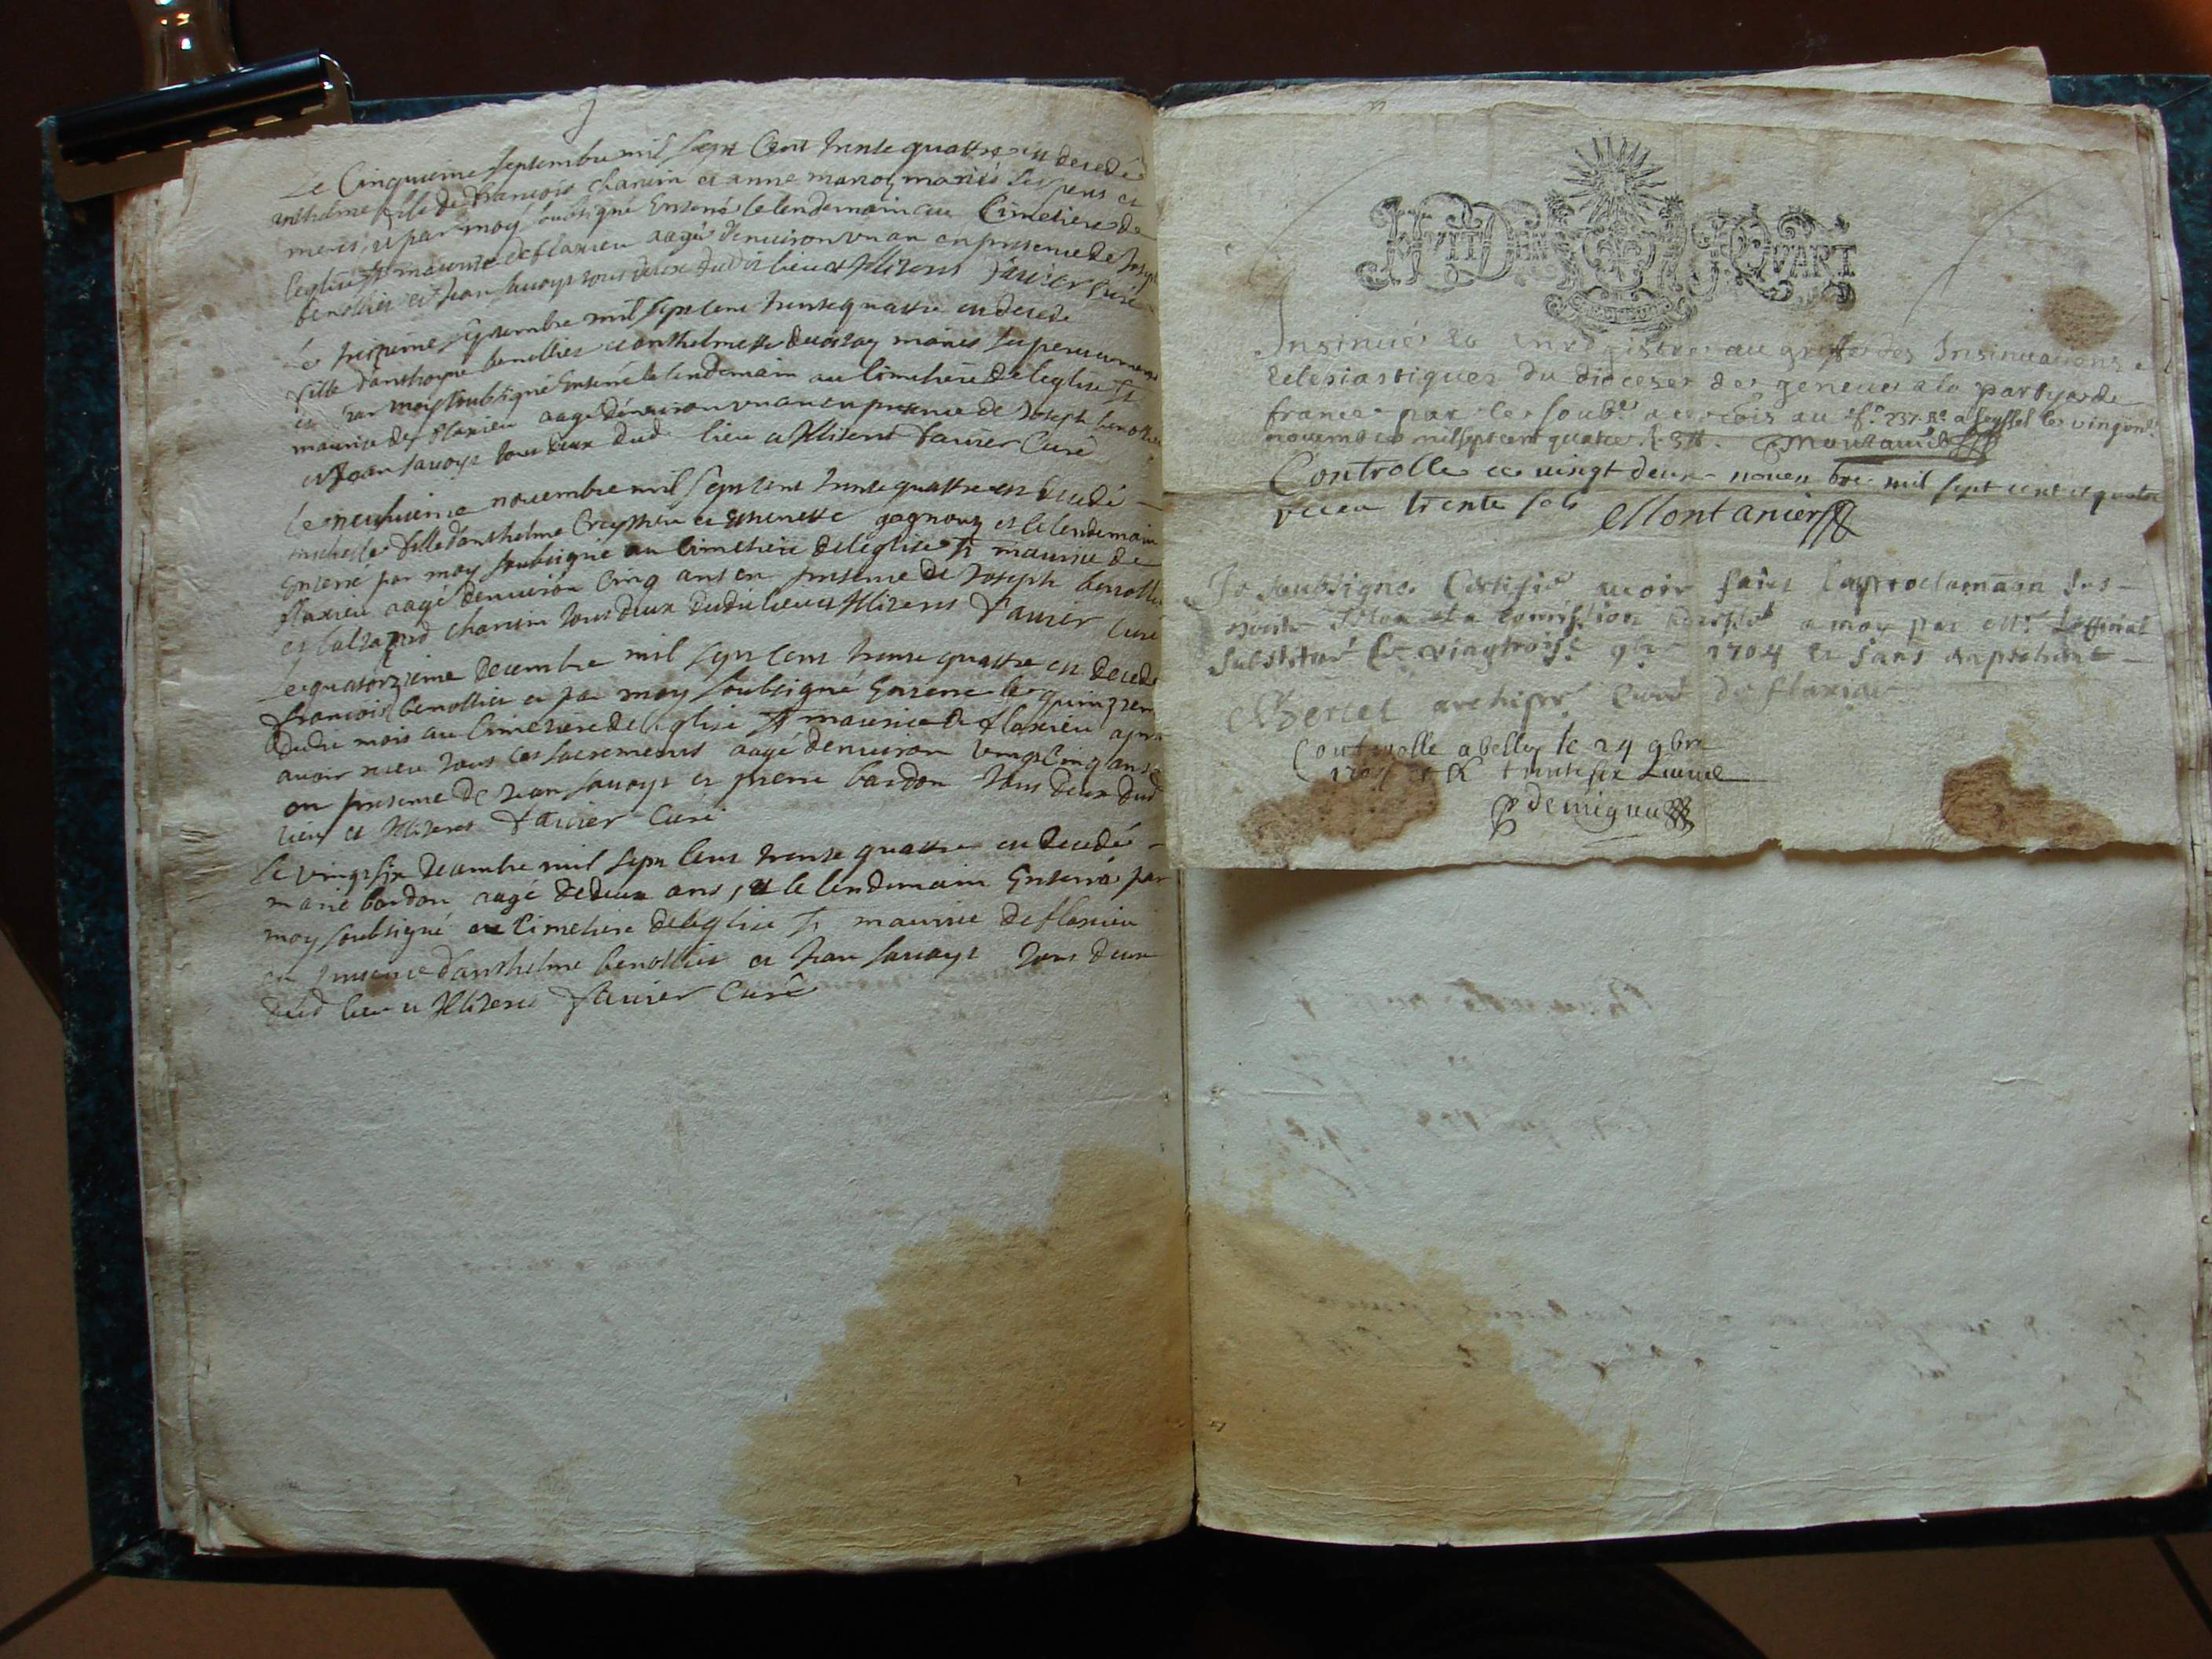 Le Cinquieme septembre mil sept Cent trente quattre est decedé
anthelme fils de François chanin et anne manoz mariés ses pere et
meres, et par moy soubsigné Enterré le lendemain au Cimetiere de
leglise St maurice de flaxieu aagé denuiron vn an en presence de Joseph
benollier et Jean sauoye tous deux dudit lieu et Illiteres fauier Curé
Le septembre mil sept cent trente quattre est decede
fille d'anthoyne benollier et anthelmette mariés ses pere et mere
et par moy soubsigné Enterré le lendemain au Cimetiere de leglise St
maurice de flaxieu aagé denuiron vn an en presence de Joseph benollier
et Jean sauoye tous deux dud. lieu et Illiteres fauier Curé
Le neufuieme nouembre mil sept cent trente quattre est decedé
fille d'anthelme et gagnoux et le lendemain
Enterré par moy soubsigné au Cimetiere de leglise St maurice de
flaxieu aagé denuiron Cinq ans en presence de Joseph benollier
et baltazard chanin tous deux dudit lieu et Illiteres fauier Curé
Le quatorzieme decembre mil sept cent trente quattre est decede
francois benollier et par moy soubsigné Enterré le quinzieme
dudit mois au Cimetiere de leglise St maurice de flaxieu apres
auoir receu tous les sacrements aagé denuiron vingt Cinq ans
en presence de Jean sauoye et pierre bardon tous deux dud
lieu et Illiteres fauier Curé
Le vingt six decembre mil sept Cent trente quattre est decedé
marie bardon aagé de deux ans, et le lendemain Enterré par
moy soubsigné au Cimetiere de leglise St maurice de flaxieu
en presence d'anthelme benollier et Jean sauoye tous deux
dud lieu et Illiteres fauier Curé
HVIT DEN LE QVART
Insinué et enregistré au greffe des Insinuations
Eclesiastiques du diocese de geneue a la partye de
france par le soub.é au f.o 237. R.o a seyssel le vingt
nouembre mil sept cent quatre Montanier
Controlle ce vingt deux nouembre mil sept cent et quatre
receu trente sols Montanier
Je soubsigné Certifie auoir fait la proclamaon sus
a la comission a moy par Mr l'official
substitué Ce vingtroise 9bre 1704 et sans
Bertet archipr. curé de flaxieu
Controlle a belley le 24 9bre
1704 et R trente six
demigieu